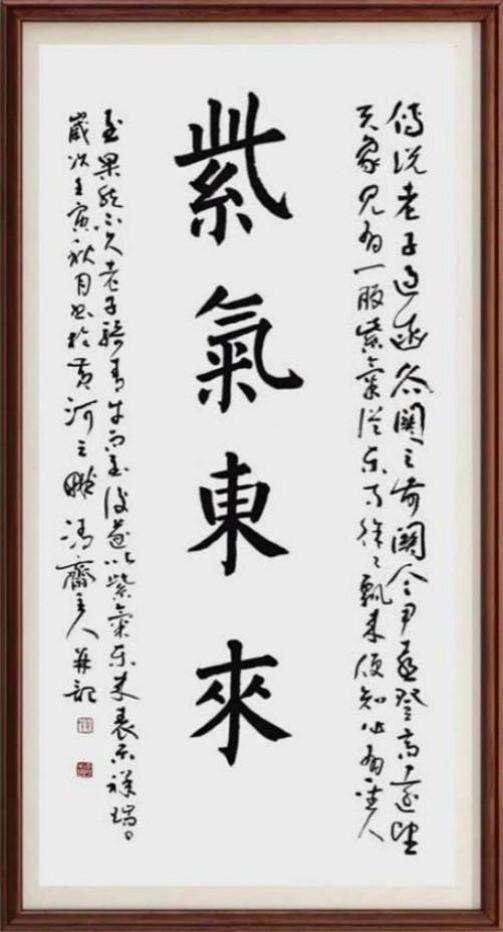 傳说老子過函谷關之前關令尹喜登高遠望
天象見有一股紫氣從東方徐々飄來便知必有聖人
紫氣東來
至果然不久老子騎青牛而至後遂以紫氣東來表示祥瑞
歲次壬寅秋月書於黃河之畔齋主人並記